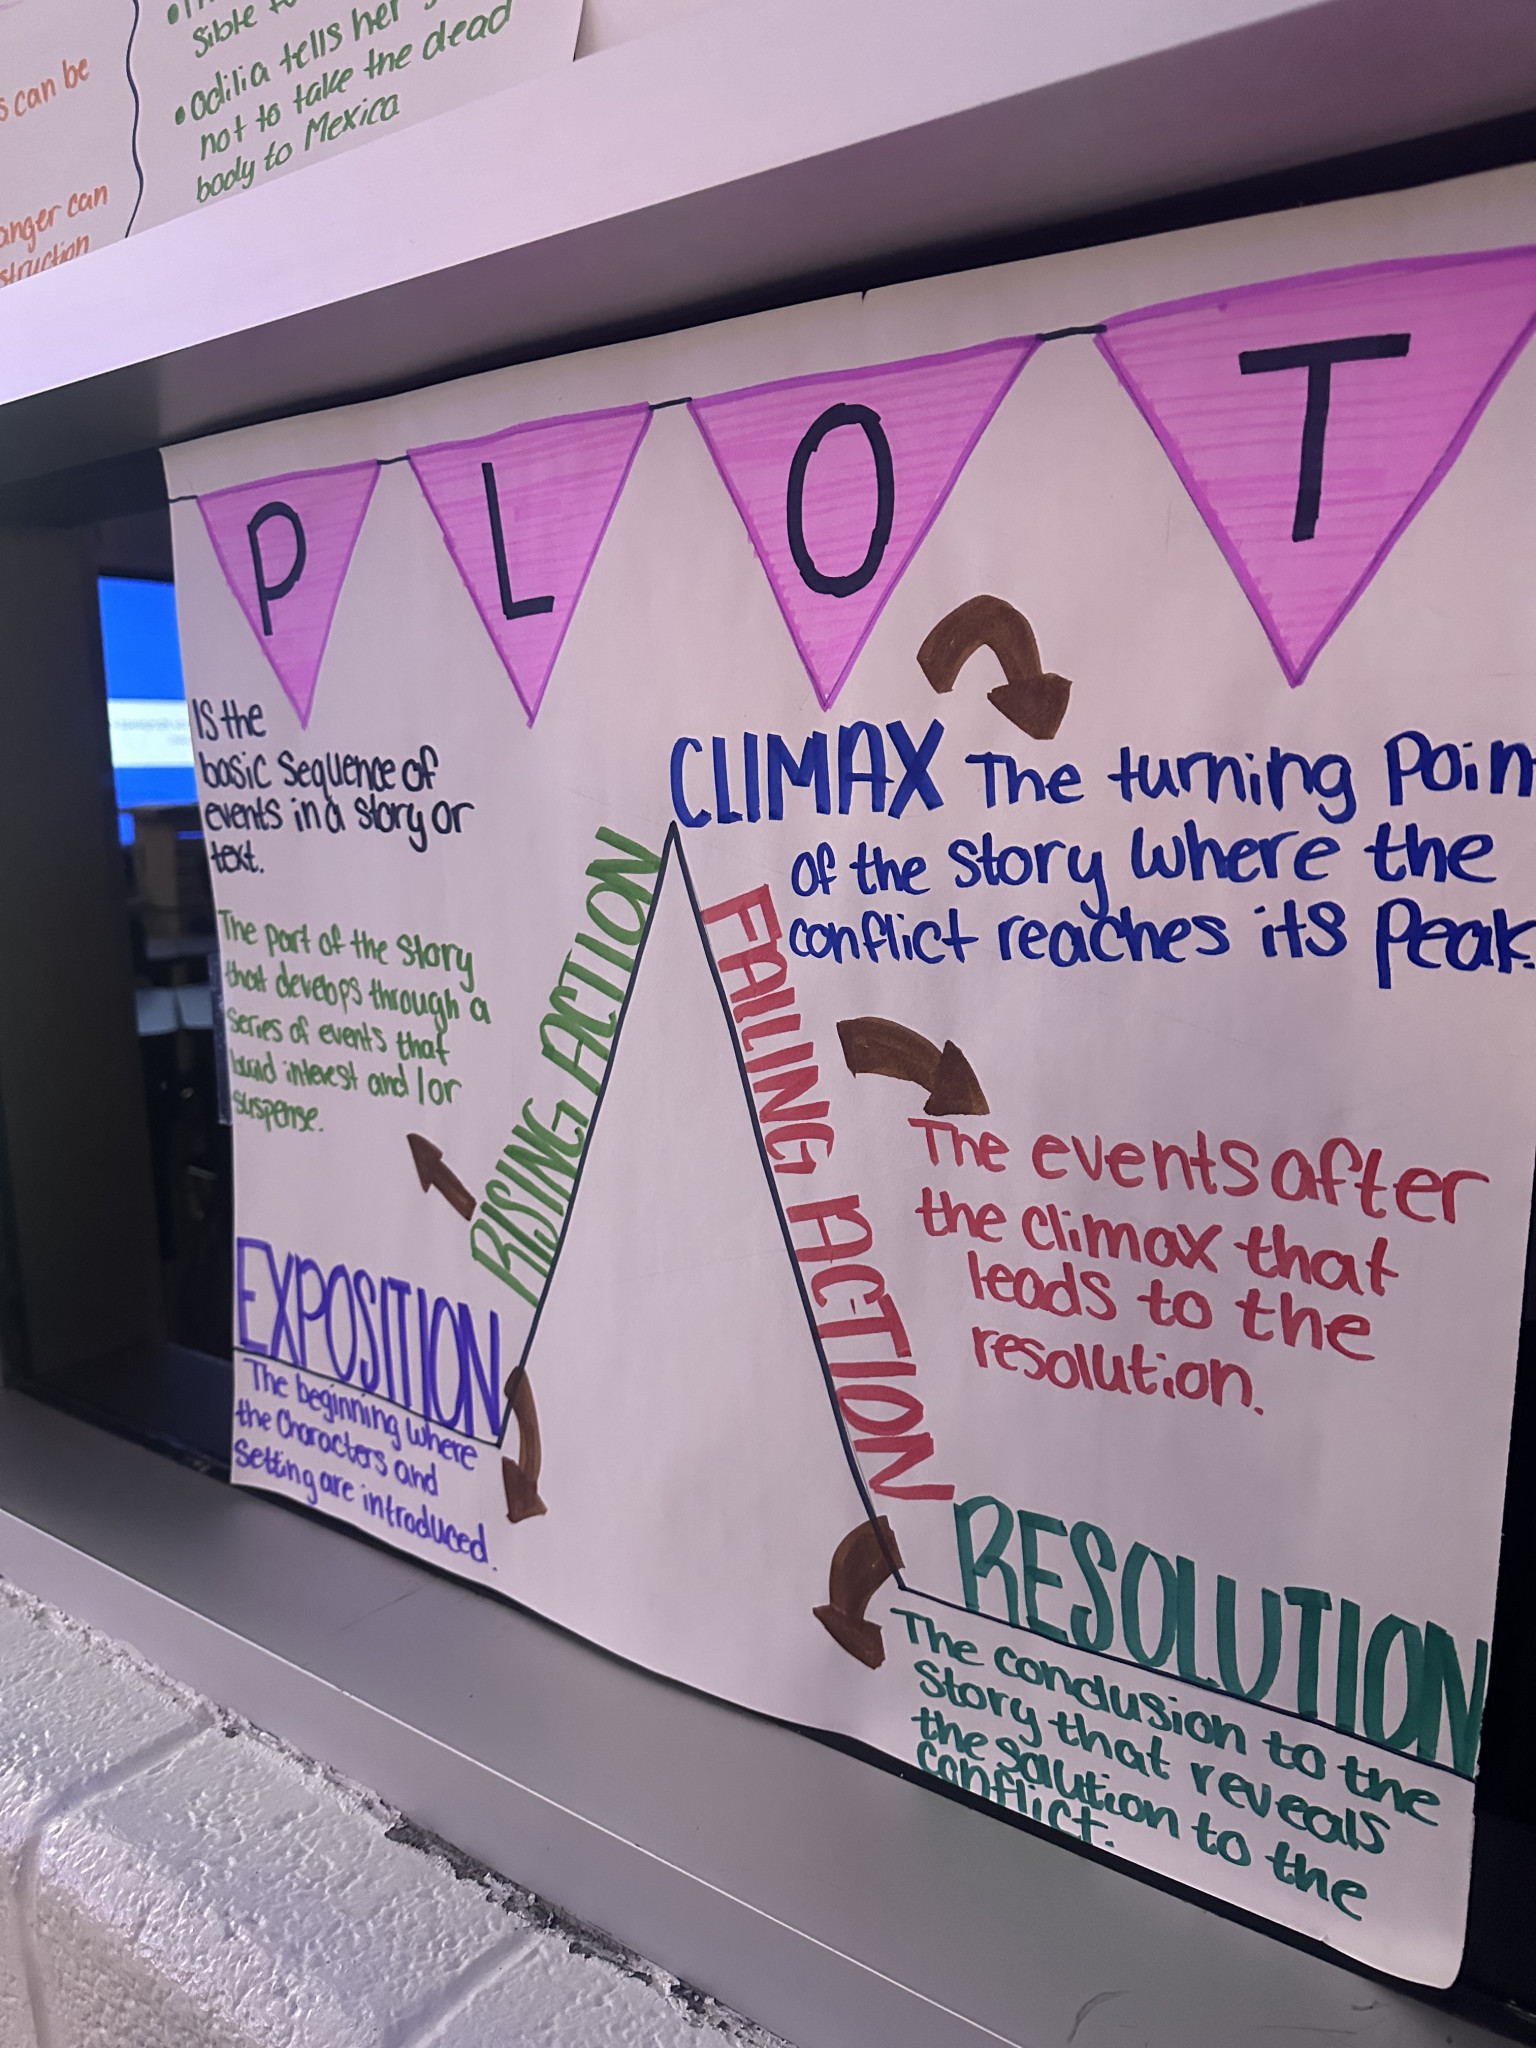 sible
Odilia tells her
not to take the dead
body to Mexico
s can be
anger can
struction
PLOT
Is the
basic sequence of
events in a story or
text.
CLIMAX The turning Poin
of the story where the
conflict reaches its Peak.
The part of the story
that develops through a
series of events that
build interest and/or
suspense.
RISING ACTION
FALLING ACTION
The events after
the climax that
leads to the
resolution.
EXPOSITION
The beginning where
the characters and
setting are introduced.
RESOLUTION
The conclusion to the
story that reveals
the solution to the
conflict.